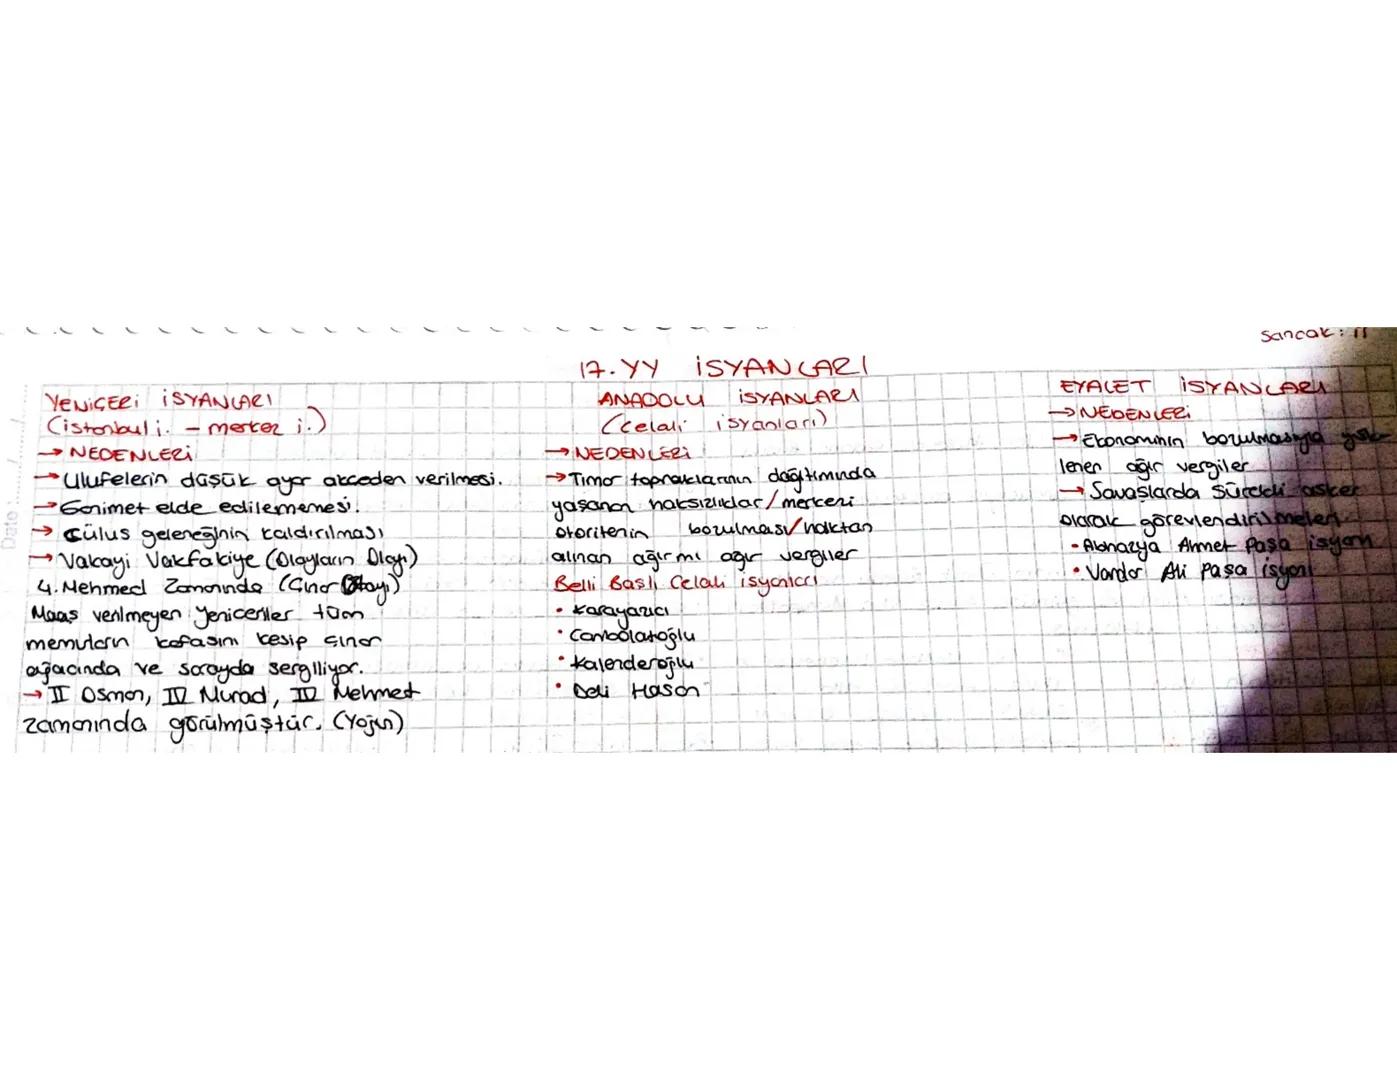 Sancak: 11
17.YY İSYANLARI
YENİÇERİ İSYANLARI
(istanbul i. - merkez i.)
→ NEDENLERİ
→ Ulufelerin düşük ayar akçeden verilmesi.
→ Ganimet elde edilememesi.
→ Cülus geleneğinin kaldırılması
→ Vakayi Vakfakiye (Olayların Olayı)
4. Mehmed Zamanında (Çınar Olayı)
Maaş verilmeyen yeniceriler tüm
memurların kafasını kesip çınar
ağacında ve sarayda sergiliyor.
→ II Osman, IV Murad, IV Mehmet
zamanında görülmüştür. (Yoğun)
ANADOLU İSYANLARI
(Celali isyanları)
→ NEDENLERİ
→ Tımar topraklarının dağıtımında
yaşanan haksızlıklar/merkezi
otoritenin bozulması/halktan
alınan ağır mı ağır vergiler
Belli Başlı Celali isyanları
• Karayazıcı
• Canbolatoğlu
• Kalenderoğlu
• Deli Hasan
EYALET İSYANLARI
→ NEDENLERİ
→ Ekonominin bozulmasıyla yük-
lenen ağır vergiler
→ Savaşlarda Sürekli asker
olarak görevlendirilmeleri
• Abhazya Ahmet Paşa isyanı
• Vardar Ali Paşa isyanı